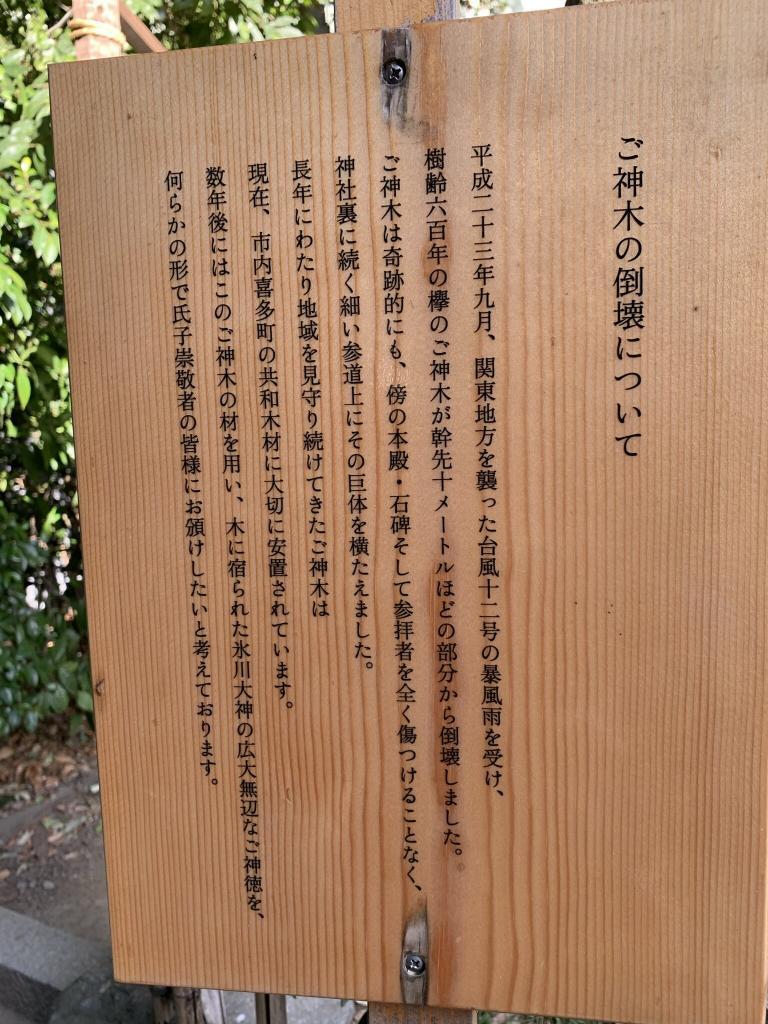 ご神木の倒壊について
平成二十三年九月、関東地方を襲った台風十二号の暴風雨を受け、
樹齢六百年の欅のご神木が幹先十メートルほどの部分から倒壊しました。
ご神木は奇跡的にも、傍の本殿・石碑そして参拝者を全く傷つけることなく、
神社裏に続く細い参道上にその巨体を横たえました。
長年にわたり地域を見守り続けてきたご神木は
現在、市内喜多町の共和木材に大切に安置されています。
数年後にはこのご神木の材を用い、木に宿られた氷川大神の広大無辺なご神徳を、
何らかの形で氏子崇敬者の皆様にお頒けしたいと考えております。